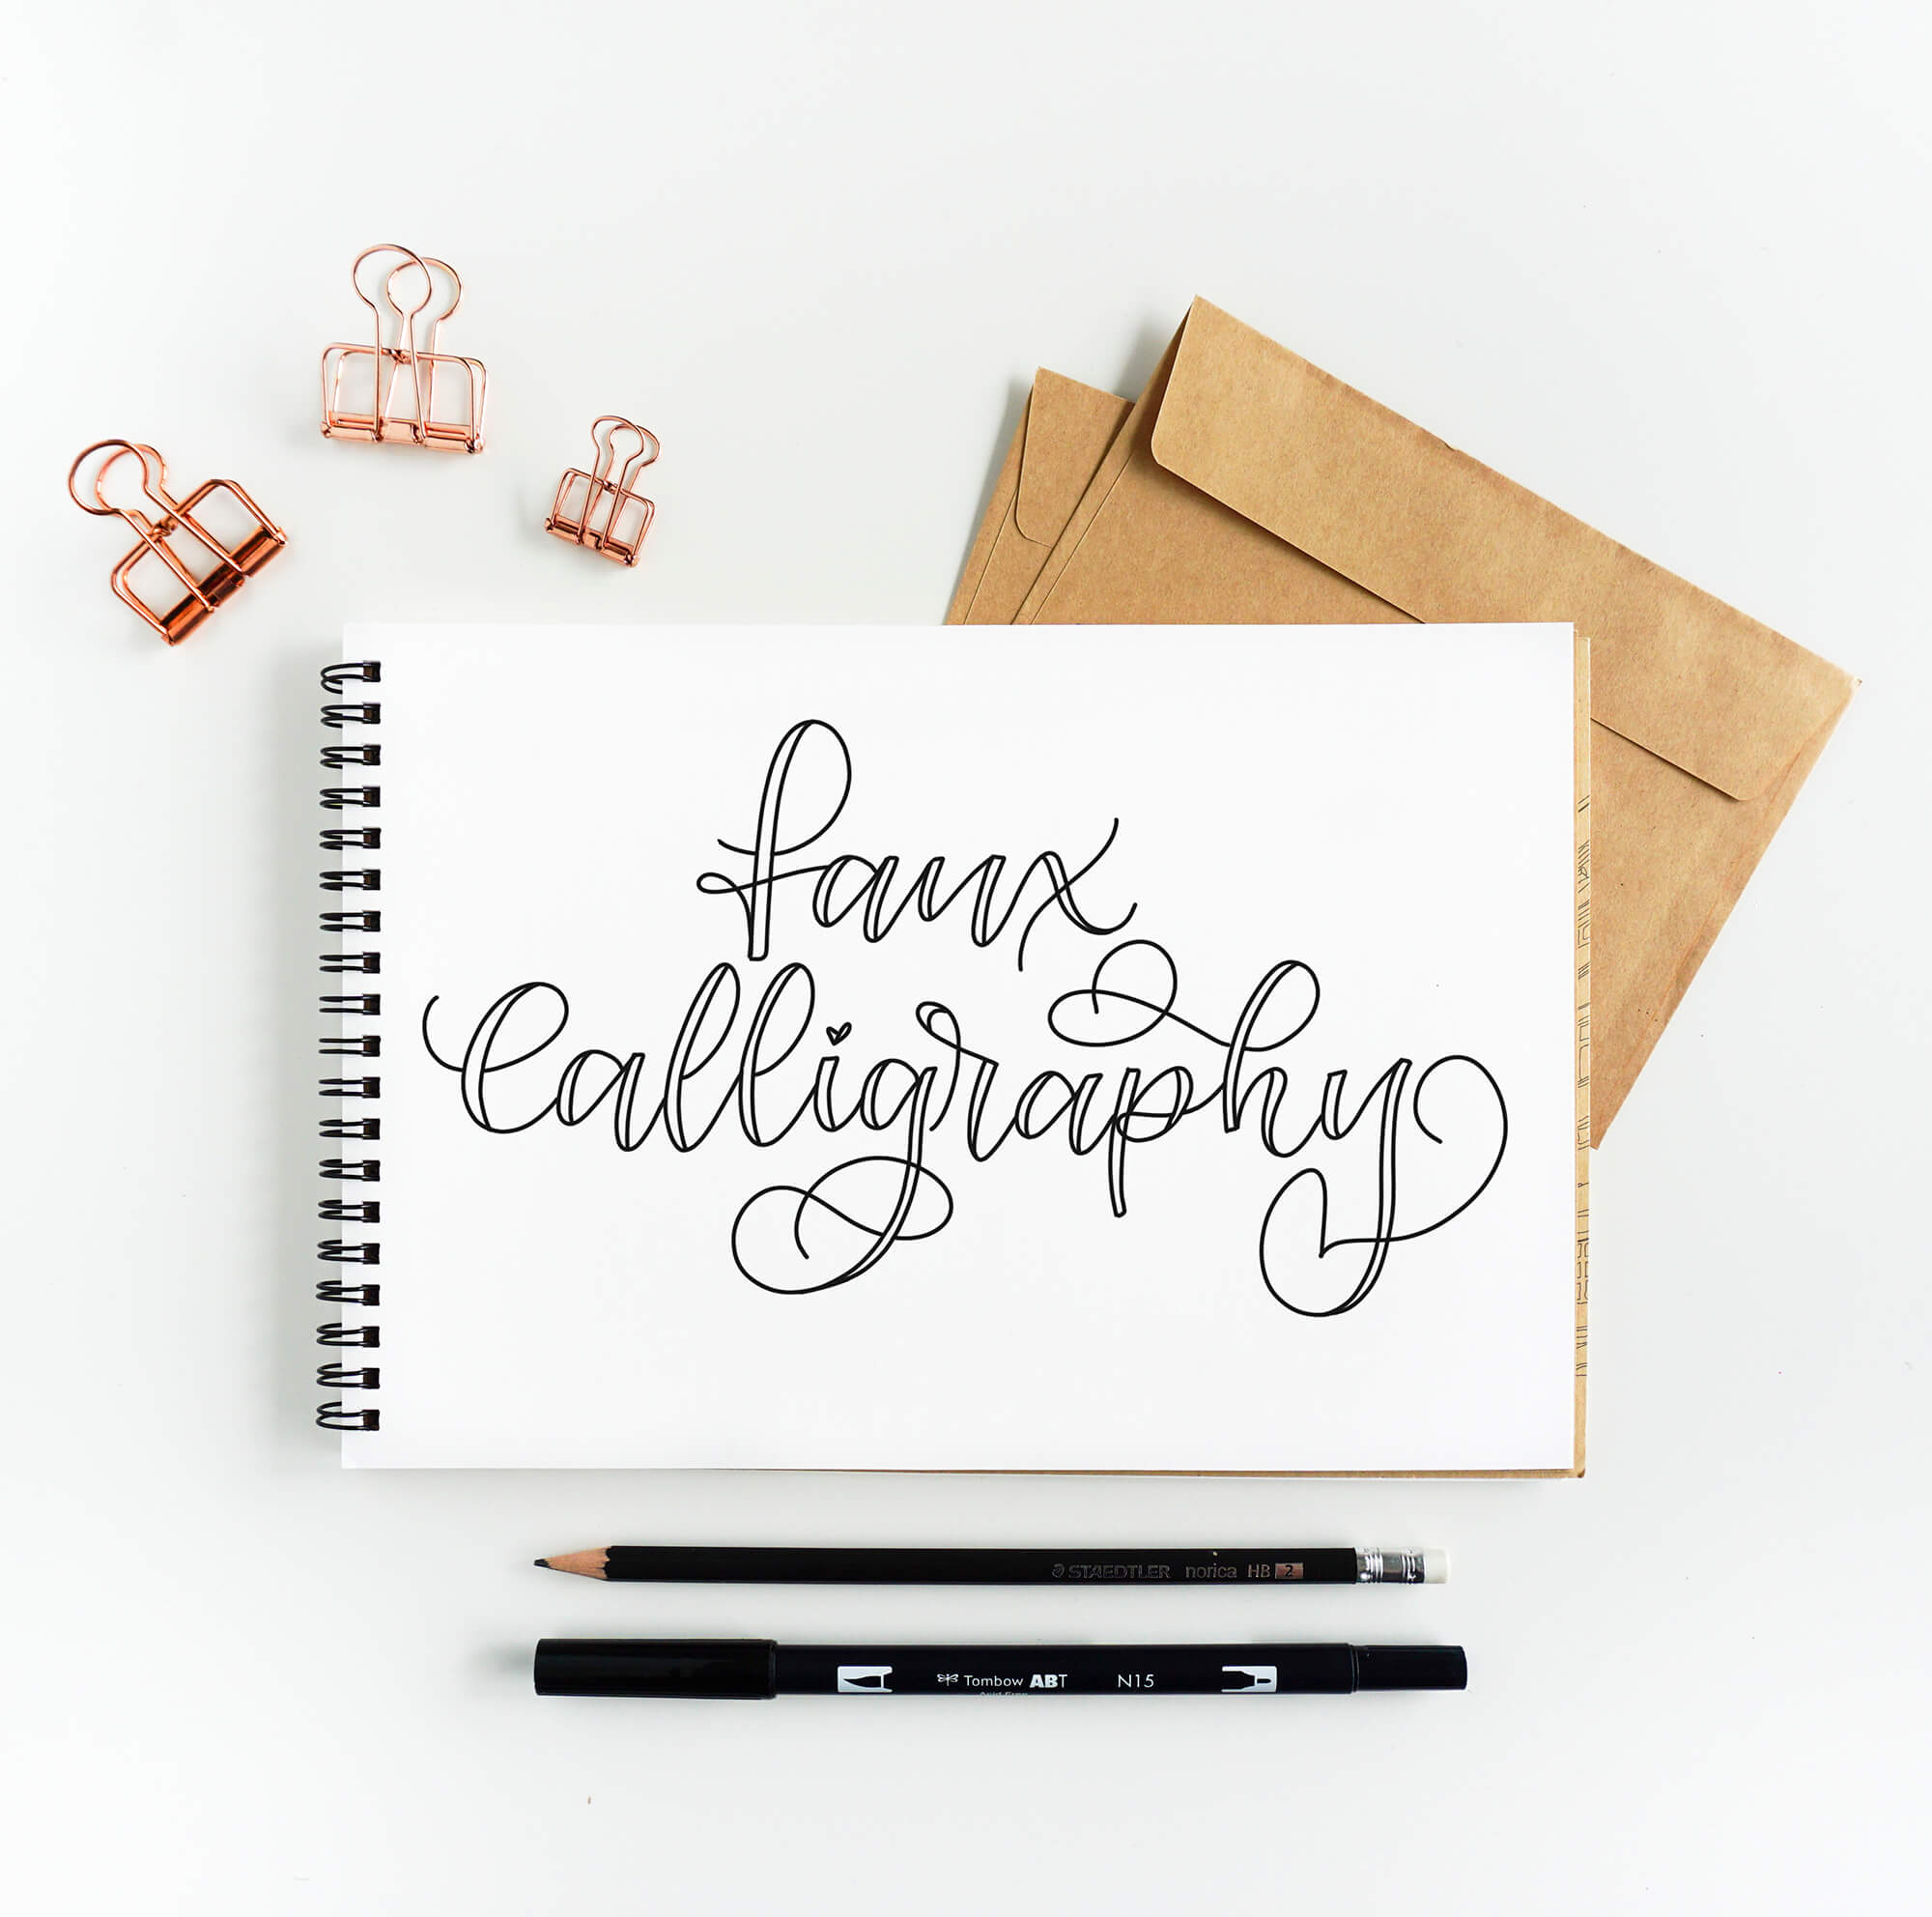 faux
Calligraphy
STAEDTLER norica HB 2
Tombow ABT N15
Acid Free